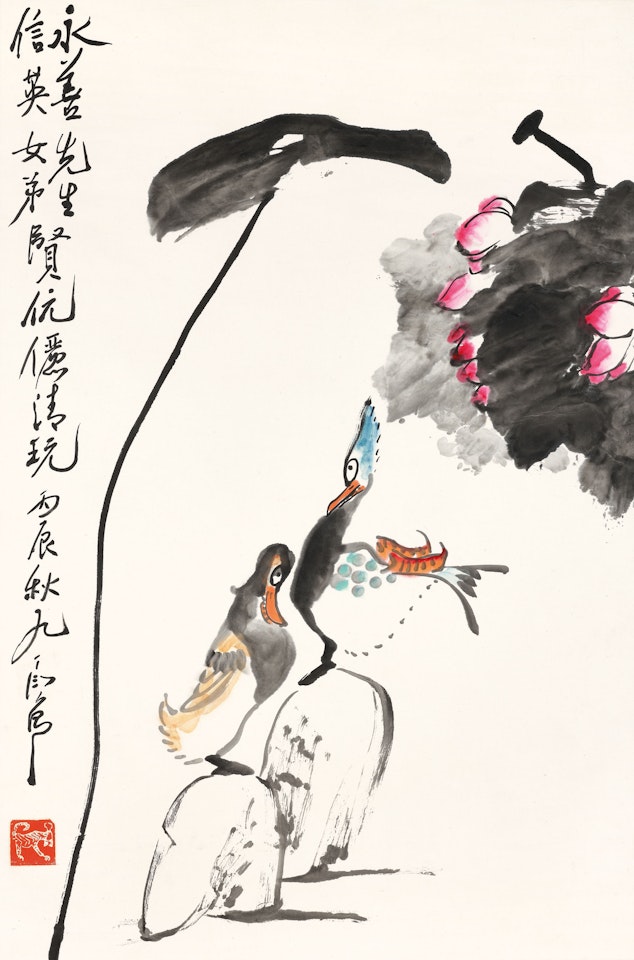 永善先生
信英女弟
賢伉儷清玩 丙辰秋九